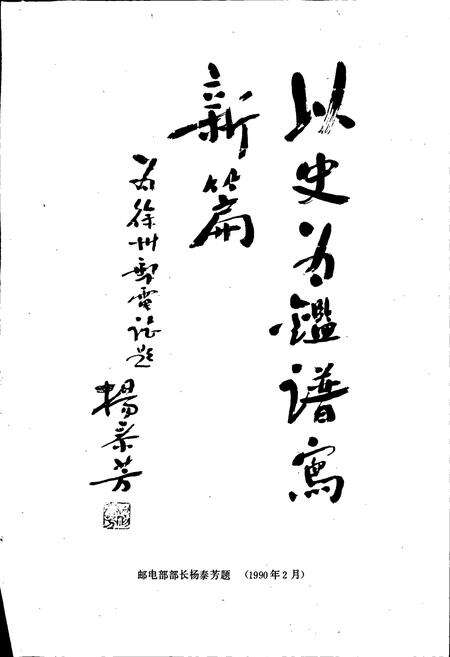 以史为鑑谱寫
新篇
为徐州郵電誌题
楊泰芳
邮电部部长杨泰芳题 （1990年2月）